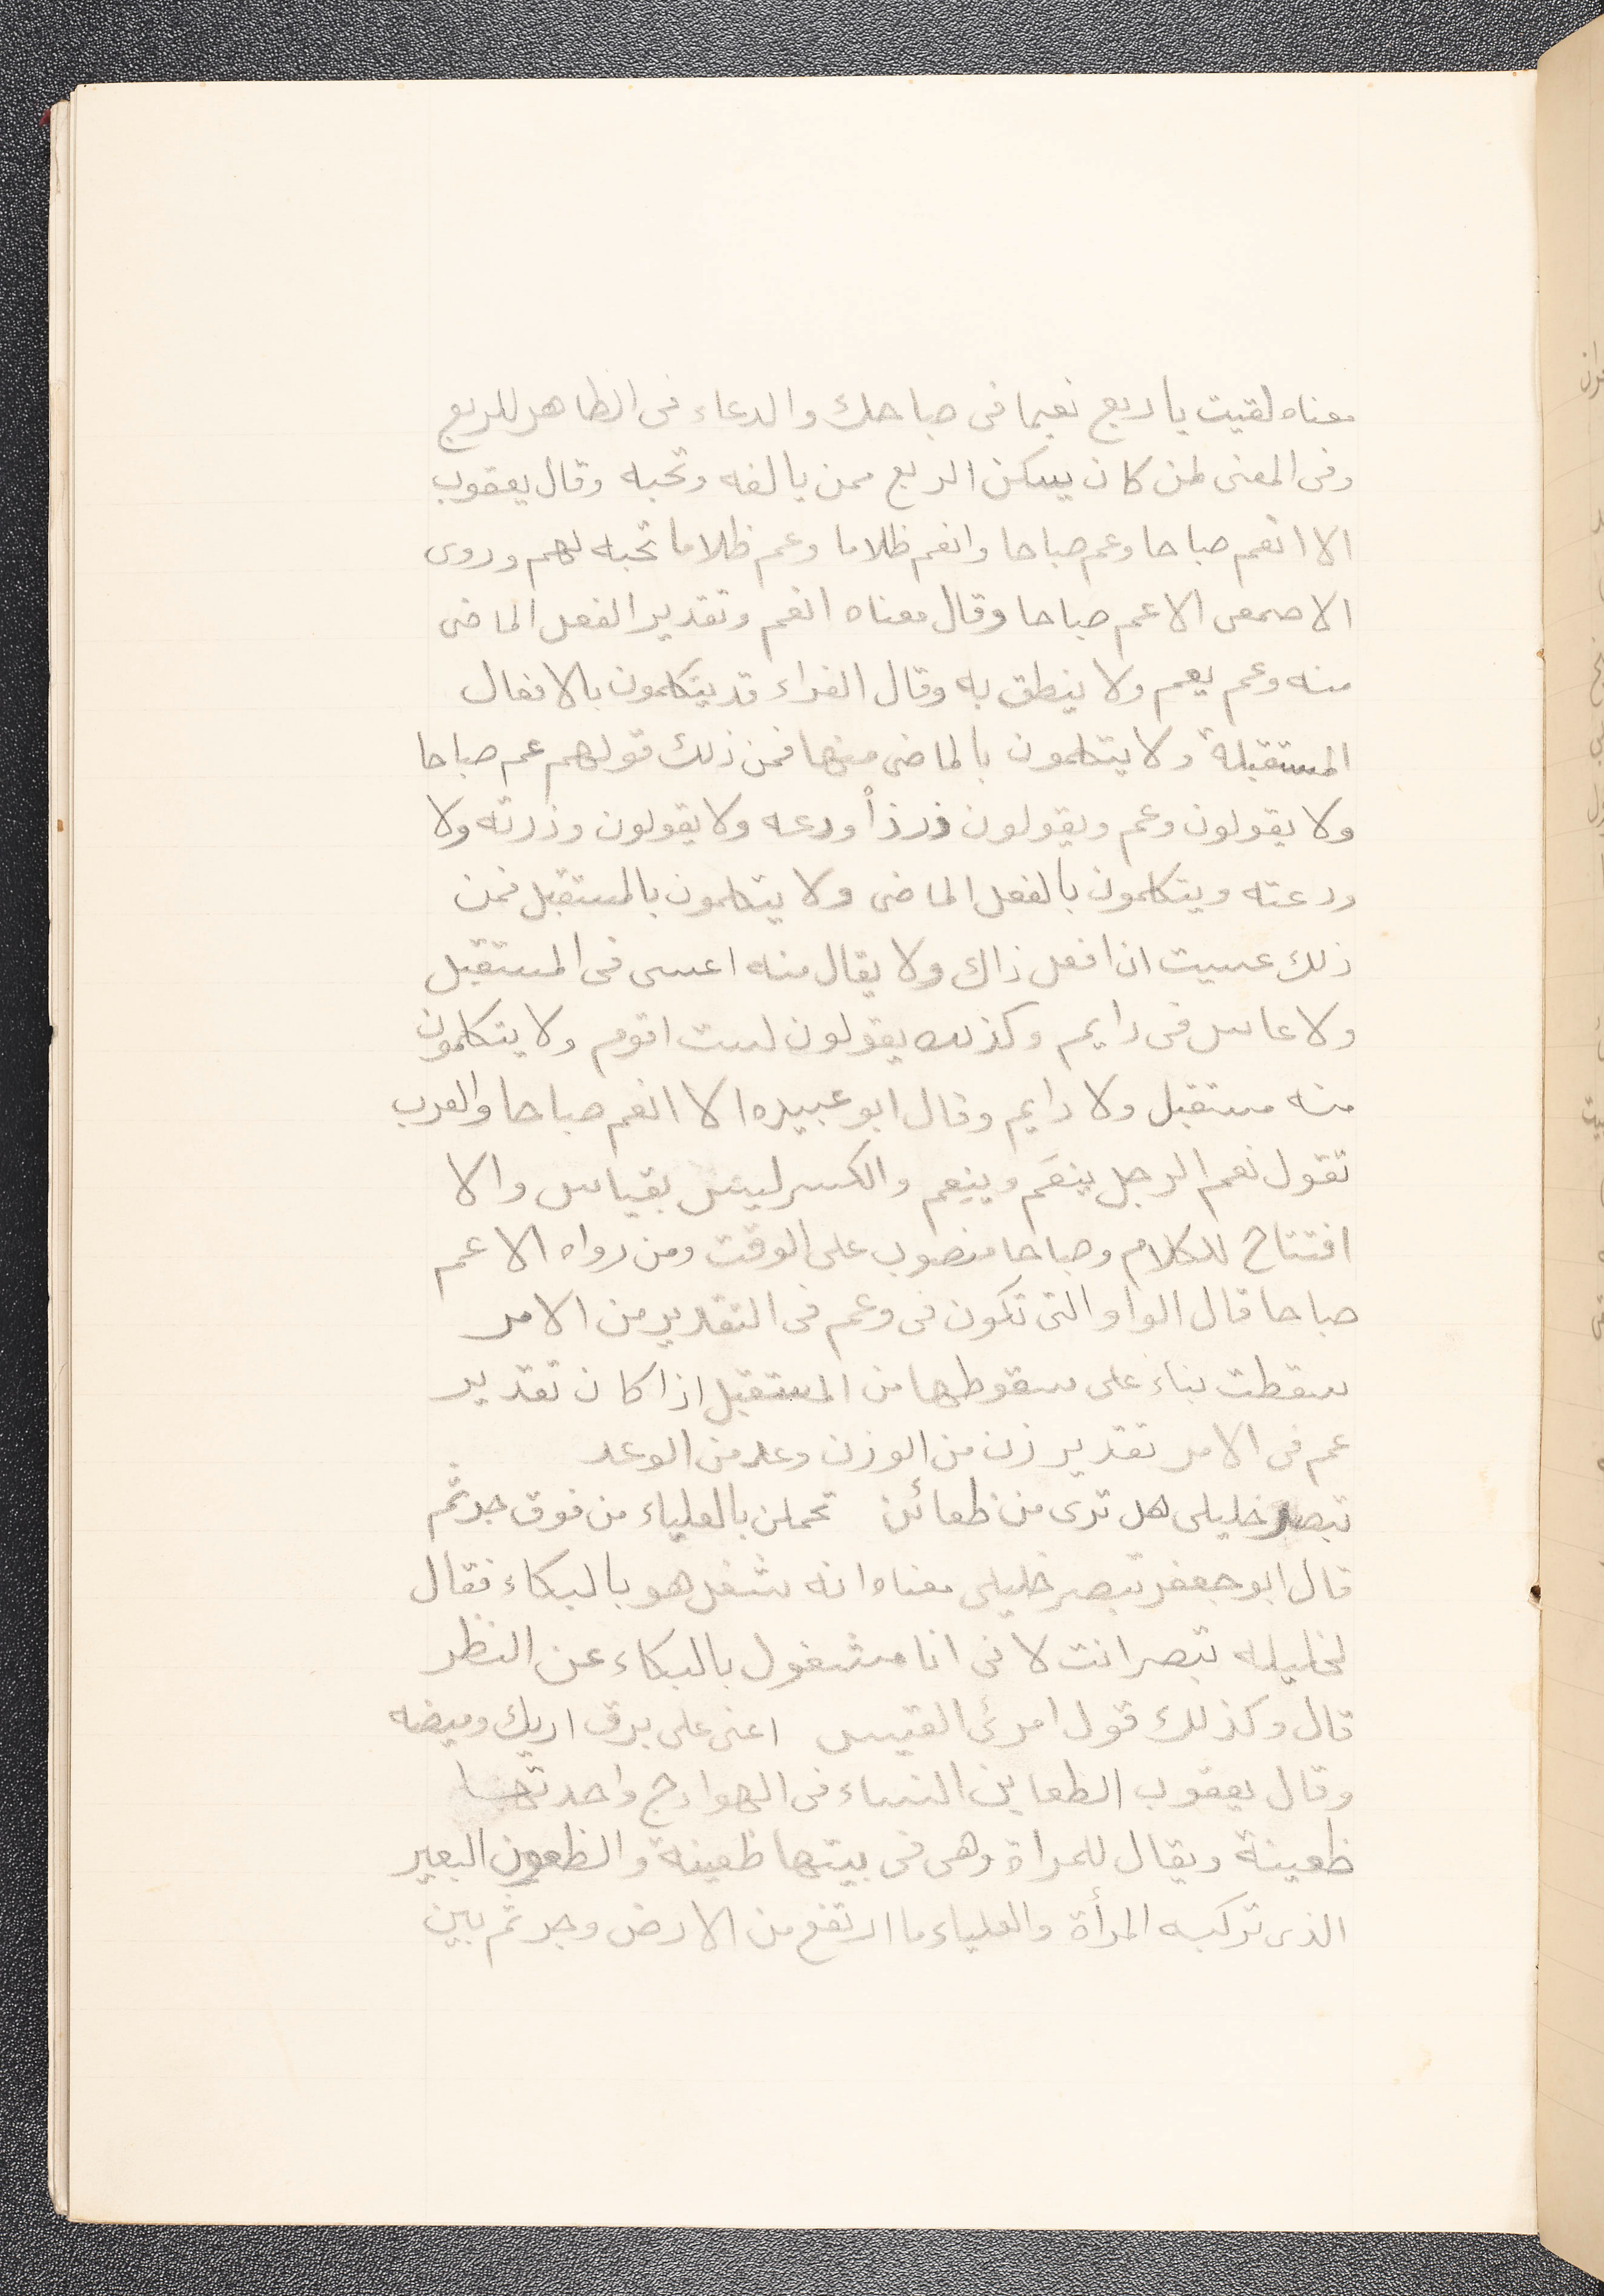 معناه لقيت يا ربع نعيما فى صباحك والدعاء فى الظاهر للربع
وفى المعنى لمن كان يسكن الربع ممن يالفه وتحبه وقال يعقوب
الا انعم صباحا وعم صباحا وانعم ظلاما وعم ظلاما تحيه لهم وروى
الاصمعى الاعم صباحا وقال معناه انعم وتقدير الفعل الماضى
منه وعم يعم ولا ينطق به وقال الفراء قد يتكلمون بالافعال
المستقبلة ولا يتكلمون بالماضى منها فمن ذلك قولهم عم صباحا
ولا يقولون وعم ويقولون ذر ذا ودعه ولا يقولون وذرته ولا
ودعته ويتكلمون بالفعل الماضى ولا يتكلمون بالمستقبل فمن
ذلك عسيت ان افعل ذاك ولا يقال منه اعسى فى المستقبل
ولا عاس فى دايم وكذلك يقولون لست اقوم ولا يتكلمون
منه مستقبل ولا دايم وقال ابو عبيده الا انعم صباحا والعرب
تقول نعم الرجل ينعَم وينعِم والكسر ليس بقياس والا
افتتاح للكلام وصباحا منصوب على الوقت ومن رواه الاعم
صباحا قال الواو التى تكون فى وعم فى التقدير من الامر
سقطت بناء على سقوطها من المستقبل اذا كان تقدير
عم فى الامر تقدير زن من الوزن وعد من الوعد
تبصر خليلى هل ترى من ظعائن تحملن بالعلياء من فوق جرثم
قال ابو جعفر تبصر خليلى معناه انه شغل هو بالبكاء فقال
لخليله تبصر انت لانى انا مشغول بالبكاء عن النظر
قال وكذلك قول امرئ القيس اعنى على برق اريك وميضه
وقال يعقوب الظعاين النساء فى الهوادج واحدتها
ظعينة ويقال للمراة وهى فى بيتها ظعينة والظعون البعير
الذى تركبه المرأة والعلياء ما ارتفع من الارض وجرثم بين